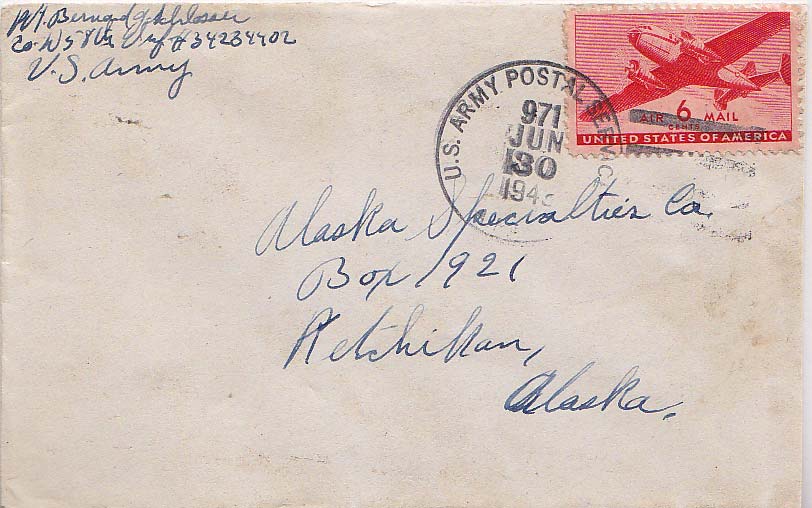 Pvt. Bernard J. Schlosser
Co. N 58th Inf #34234402
U.S. Army
U.S. ARMY POSTAL SERVICE
971
JUN
30
194
AIR 6 MAIL
CENTS
UNITED STATES OF AMERICA
Alaska Specialties Co.
Box 1921
Ketchikan,
Alaska.